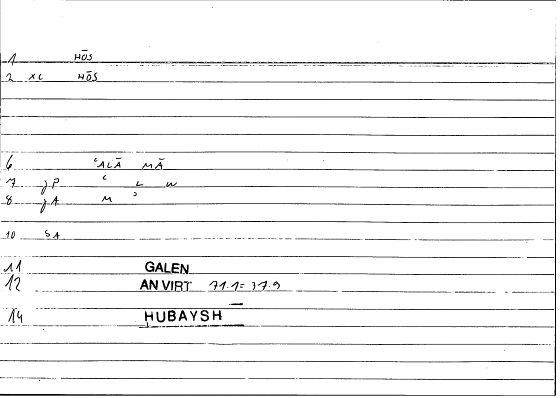 1 HŌS
2 XL HŌS
6 ʿALĀ MĀ
7 JP ʿ L W
8 JA M ʾ
10 SA
11 GALEN
12 AN VIRT 71.1= 37.9
14 HUBAYSH